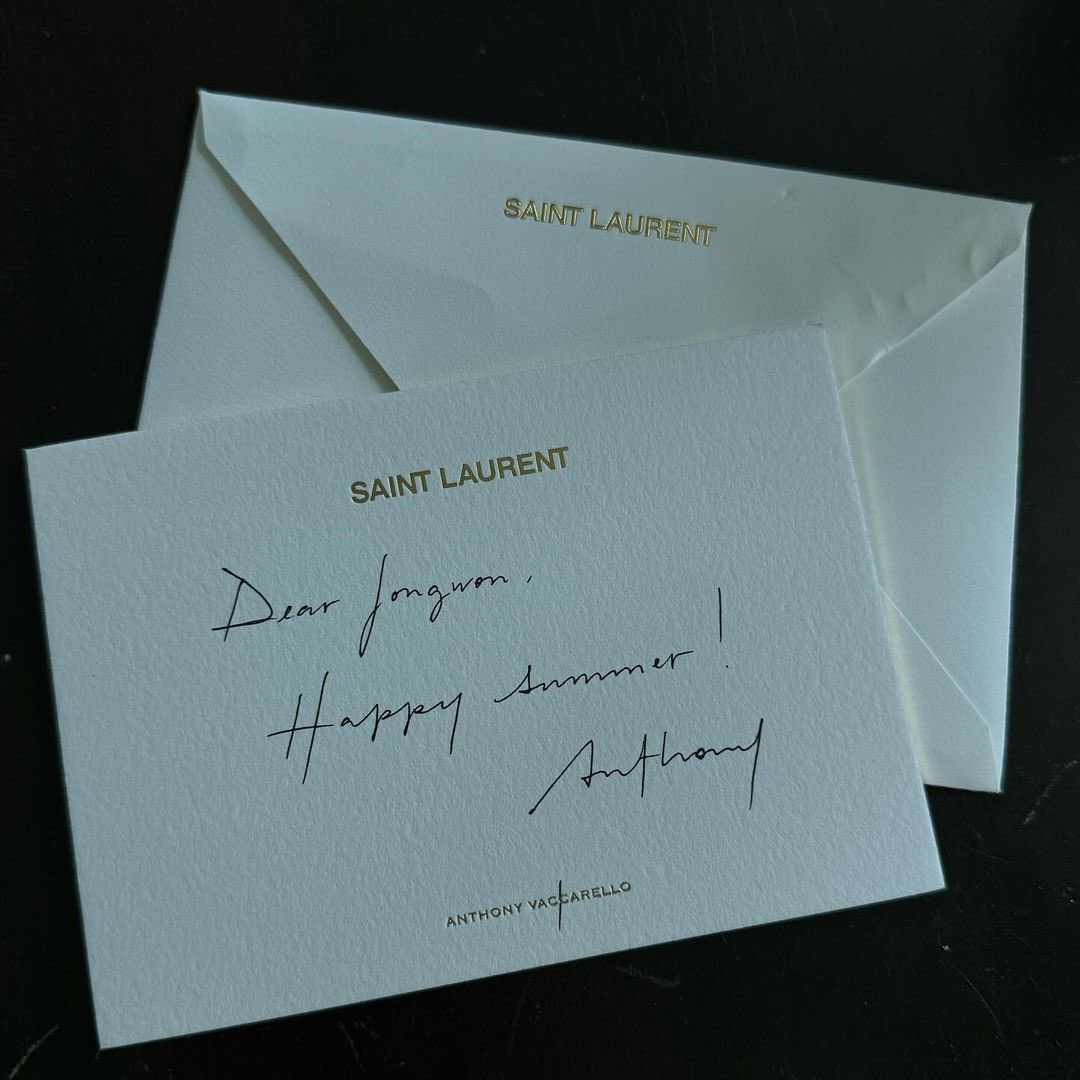 SAINT LAURENT
SAINT LAURENT
Dear Jongwon,
Happy summer!
Anthony
ANTHONY VACCARELLO